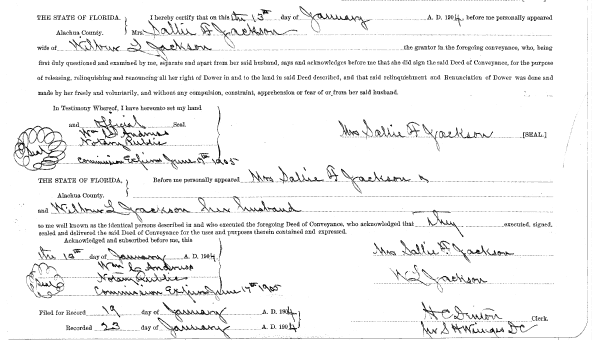 THE STATE OF FLORIDA, I hereby certify that on this 13th day of January A. D. 1904, before me personally appeared
Alachua County. Mrs Sallie F Jackson
wife of Wilbur L Jackson the grantor in the foregoing conveyance, who, being
first duly questioned and examined by me, separate and apart from her said husband, says and acknowledges before me that she did sign the said Deed of Conveyance, for the purpose
of releasing, relinquishing and renouncing all her right of Dower in and to the land in said Deed described, and that said relinquishment and Renunciation of Dower was done and
made by her freely and voluntarily, and without any compulsion, constraint, apprehension or fear of or from her said husband.
In Testimony Whereof, I have hereunto set my hand
and official Seal.
Wm
Notary Public
Seal
Mrs Sallie F Jackson [SEAL.]
Commission Expires June 1905
THE STATE OF FLORIDA, Before me personally appeared Mrs Sallie F Jackson
Alachua County.
and Wilbur L Jackson her husband
to me well known as the identical persons described in and who executed the foregoing Deed of Conveyance, who acknowledged that they executed, signed,
sealed and delivered the said Deed of Conveyance for the uses and purposes therein contained and expressed.
Acknowledged and subscribed before me, this
the day of January A. D. 1904
Mrs Sallie F. Jackson
Wm
Notary Public
Seal
W L Jackson
Commission Expires June 17th 1905
Filed for Record 19 day of January A. D. 1904
H C Clerk.
Recorded 23 day of January A. D. 1904
per S H Wienges DC